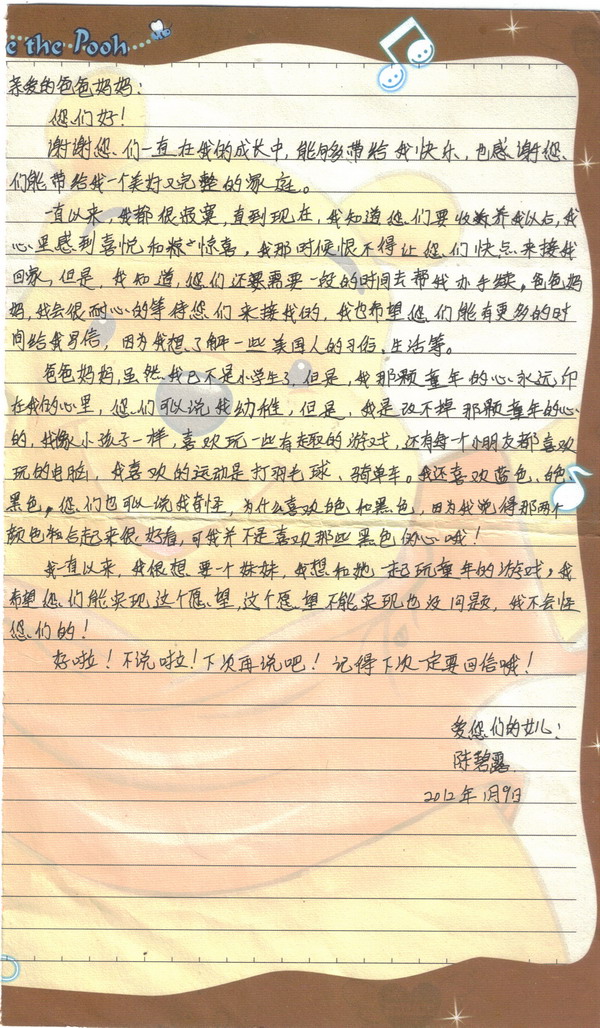 e the Pooh
亲爱的爸爸妈妈:
您们好!
谢谢您们一直在我的成长中,能够带给我快乐,也感谢您
们能带给我一个美好又完整的家庭。
一直以来,我都很寂寞,直到现在,我知道您们要收养我以后,我
心里感到喜悦和惊喜,我那时候恨不得让您们快点来接我
回家,但是,我知道,您们还需要一段的时间去帮我办手续。爸爸妈
妈,我会很耐心的等待您们来接我的,我也希望您们能有更多的时
间给我写信,因为我想了解一些美国人的习俗、生活等。
爸爸妈妈,虽然我已不是小学生了,但是,我那颗童年的心永远印
在我的心里,您们可以说我幼稚,但是,我是改不掉那颗童年的心
的,我像小孩子一样,喜欢玩一些有趣的游戏,还有每个小朋友都喜欢
玩的电脑,我喜欢的运动是打羽毛球、骑单车。我还喜欢蓝色、白色、
黑色。您们也可以说我奇怪,为什么喜欢白色和黑色,因为我觉得那两个
颜色粘合起来很好看,可我并不是喜欢那些黑色的心哦!
我一直以来,我很想要一个妹妹,我想和她一起玩童年的游戏,我
希望您们能实现这个愿望,这个愿望不能实现也没问题,我不会怪
您们的!
好啦!不说啦!下次再说吧!记得下次一定要回信哦!
爱您们的女儿:
陈碧露
2012年1月9日